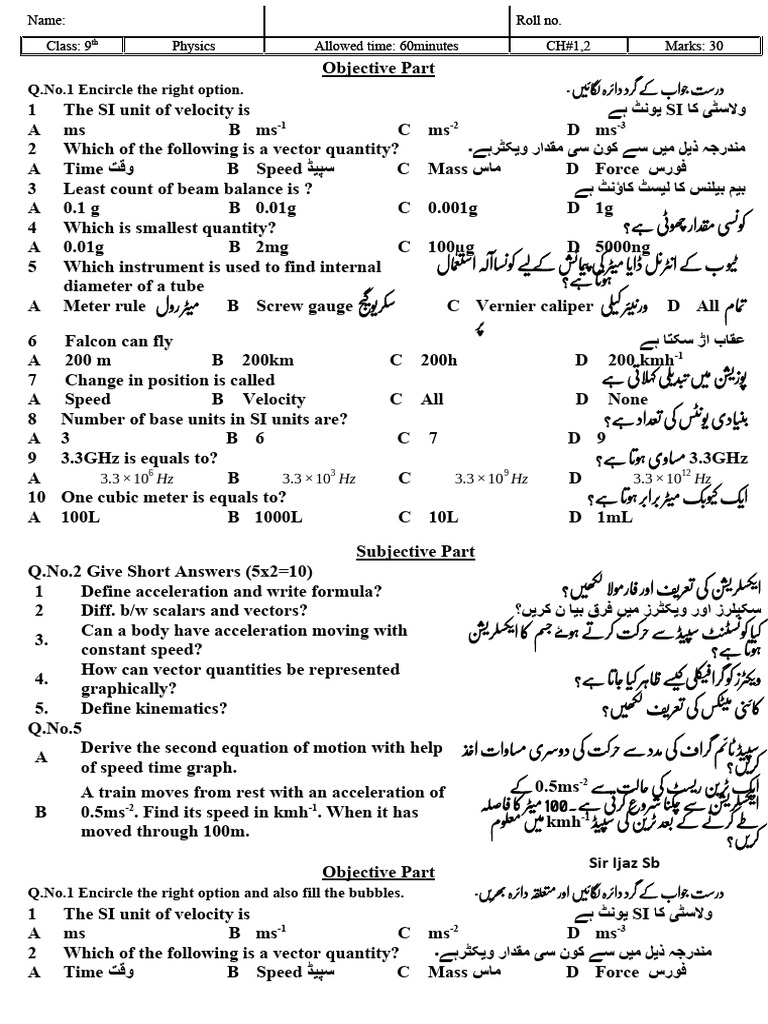 Name: Roll no.
Class: 9th Physics Allowed time: 60minutes CH#1,2 Marks: 30
Objective Part
Q.No.1 Encircle the right option. درست جواب کے گرد دائرہ لگائیں۔
1 The SI unit of velocity is ولاسٹی کا SI یونٹ ہے
A ms B ms-1 C ms-2 D ms-3
2 Which of the following is a vector quantity? مندرجہ ذیل میں سے کون سی مقدار ویکٹرہے۔
A Time وقت B Speed سپیڈ C Mass ماس D Force فورس
3 Least count of beam balance is ? بیم بیلنس کا لیسٹ کاؤنٹ ہے
A 0.1 g B 0.01g C 0.001g D 1g
4 Which is smallest quantity? کونسی مقدار چھوٹی ہے؟
A 0.01g B 2mg C 100µg D 5000ng
5 Which instrument is used to find internal ٹیوب کے انٹرنل ڈایا میٹر کی پیمائش کے لیے کونسا آلہ استعمال
diameter of a tube ہوتا ہے؟
A Meter rule میٹر رول B Screw gauge سکریو گیج C Vernier caliper ورنیئر کیلی D All تمام
پر
6 Falcon can fly عقاب اڑ سکتا ہے
A 200 m B 200km C 200h D 200 kmh-1
7 Change in position is called پوزیشن میں تبدیلی کہلاتی ہے
A Speed B Velocity C All D None
8 Number of base units in SI units are? بنیادی یونٹس کی تعداد ہے؟
A 3 B 6 C 7 D 9
9 3.3GHz is equals to? 3.3GHz مساوی ہوتا ہے؟
A 3.3 × 10^6 Hz B 3.3 × 10^3 Hz C 3.3 × 10^9 Hz D 3.3 × 10^12 Hz
10 One cubic meter is equals to? ایک کیوبک میٹر برابر ہوتا ہے؟
A 100L B 1000L C 10L D 1mL
Subjective Part
Q.No.2 Give Short Answers (5x2=10)
1 Define acceleration and write formula? ایکسلریشن کی تعریف اور فارمولا لکھیں؟
2 Diff. b/w scalars and vectors? سکیلرز اور ویکٹرز میں فرق بیان کریں؟
3. Can a body have acceleration moving with کیا کونسٹنٹ سپیڈ سے حرکت کرتے ہوئے جسم کا ایکسلریشن
constant speed? ہوتا ہے؟
4. How can vector quantities be represented ویکٹرز کو گرافیکلی کیسے ظاہر کیا جاتا ہے؟
graphically?
5. Define kinematics? کائنی میٹکس کی تعریف لکھیں؟
Q.No.5
A Derive the second equation of motion with help سپیڈ ٹائم گراف کی مدد سے حرکت کی دوسری مساوات اخذ
of speed time graph. کریں؟
A train moves from rest with an acceleration of ایک ٹرین ریسٹ کی حالت سے 0.5ms-2 کے
B 0.5ms-2. Find its speed in kmh-1. When it has ایکسلریشن سے چلنا شروع کرتی ہے۔ 100 میٹر کا فاصلہ
moved through 100m. طے کرنے کے بعد ٹرین کی سپیڈ kmh-1 میں معلوم
کریں؟
Sir Ijaz Sb
Objective Part
Q.No.1 Encircle the right option and also fill the bubbles. درست جواب کے گرد دائرہ لگائیں اور متعلقہ دائرہ بھریں۔
1 The SI unit of velocity is ولاسٹی کا SI یونٹ ہے
A ms B ms-1 C ms-2 D ms-3
2 Which of the following is a vector quantity? مندرجہ ذیل میں سے کون سی مقدار ویکٹرہے۔
A Time وقت B Speed سپیڈ C Mass ماس D Force فورس